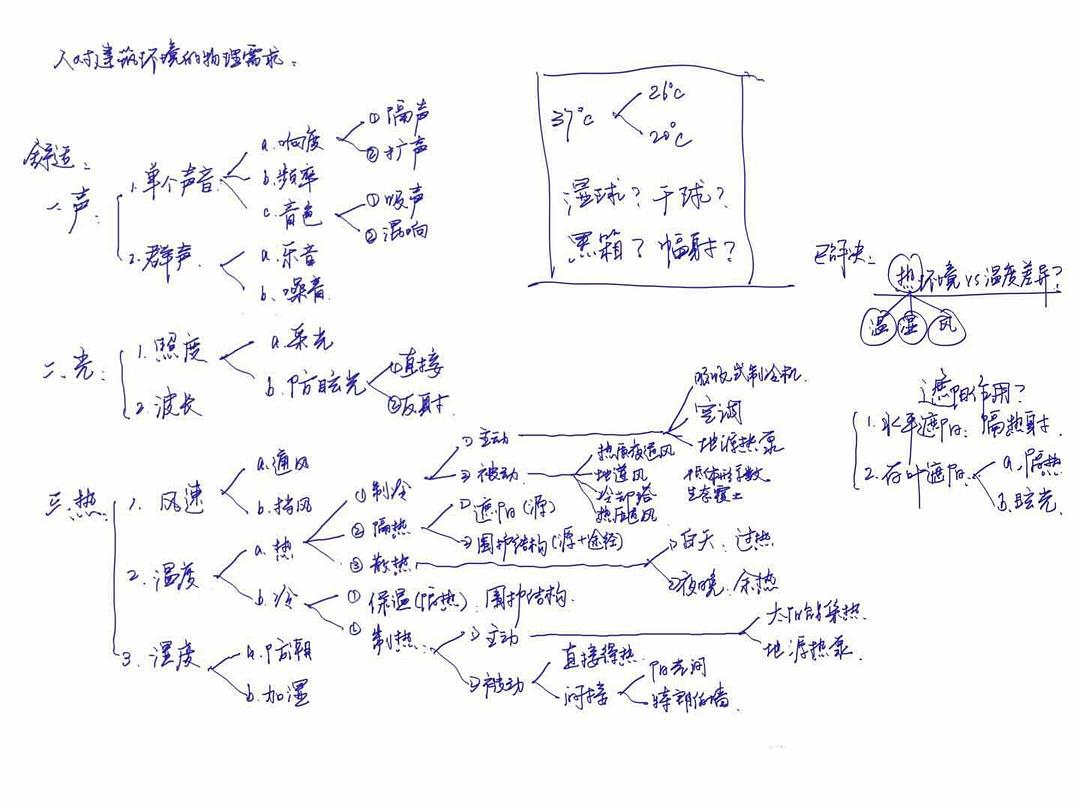 人对建筑环境的物理需求:
舒适:
一声:
1.单个声音
a.响度
①隔声
②扩声
b.频率
c.音色
①吸声
②混响
2.群声
a.乐音
b.噪音
二、光:
1.照度
a.采光
b.防眩光
①直接
②反射
2.波长
三、热
1.风速
a.通风
b.挡风
2.温度
a.热
①制冷
①主动
吸收式制冷机
空调
地源热泵
②被动
热质夜通风
地道风
冷却塔
热压通风
低体形系数
生存覆土
②隔热
①遮阳(源)
②围护结构(源+途径)
③散热
①白天:过热
②夜晚:余热
b.冷
①保温(隔热):围护结构
②制热
①主动
太阳能集热
地源热泵
②被动
直接得热
间接
阳光间
特朗伯墙
3.湿度
a.防潮
b.加湿
37°C
26°C
20°C
湿球?干球?
黑箱?幅射?
已解决:
热环境vs温度差异?
温 湿 风
遮阳作用?
1.水平遮阳:隔热射
2.百叶遮阳
a.隔热
b.眩光